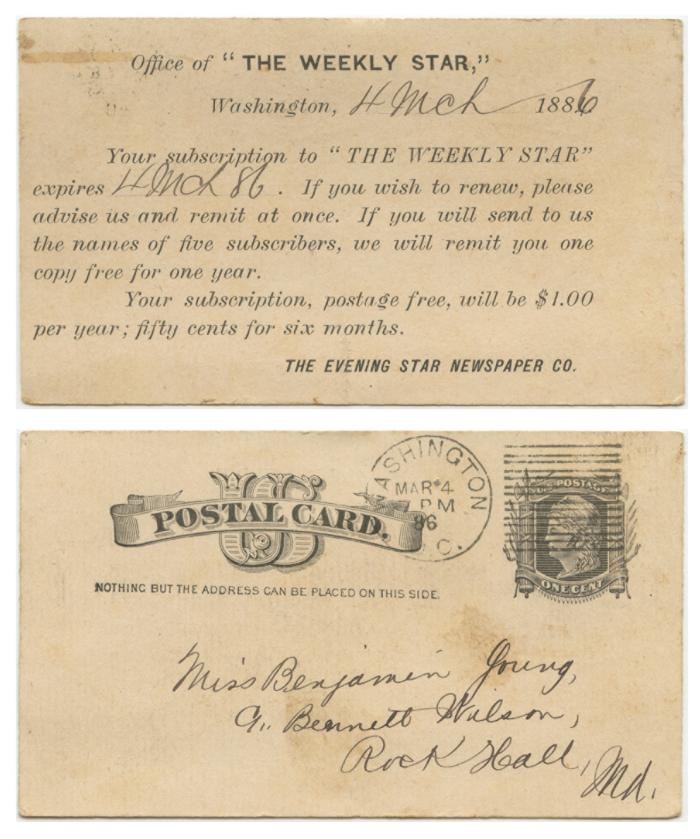 Office of “ THE WEEKLY STAR,”
Washington, 4 Mch 1886
Your subscription to “ THE WEEKLY STAR”
expires 4 Mch 86 . If you wish to renew, please
advise us and remit at once. If you will send to us
the names of five subscribers, we will remit you one
copy free for one year.
Your subscription, postage free, will be $1.00
per year; fifty cents for six months.
THE EVENING STAR NEWSPAPER CO.
US
POSTAL CARD.
NOTHING BUT THE ADDRESS CAN BE PLACED ON THIS SIDE.
WASHINGTON
MAR 4
1 PM
86
D.C.
U.S. POSTAGE
ONE CENT
Miss Benjamin Young,
Bennett Wilson,
Rock Hall, Md.